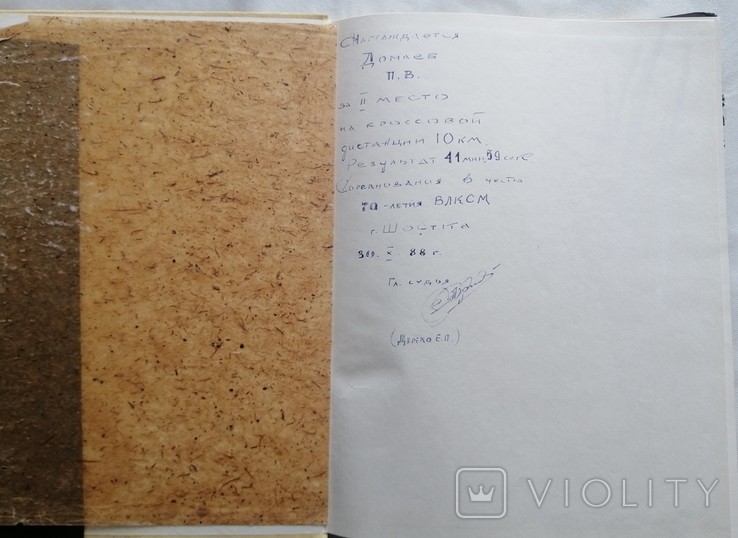 Награждается
Домаев
П. В.
за II место
на кроссовой
дистанции 10 км.
Результат 41 мин. 59 сек
Соревнования в честь
70-летия ВЛКСМ
г. Шостка
X 88 г.
Гл. судья
VIOLITY